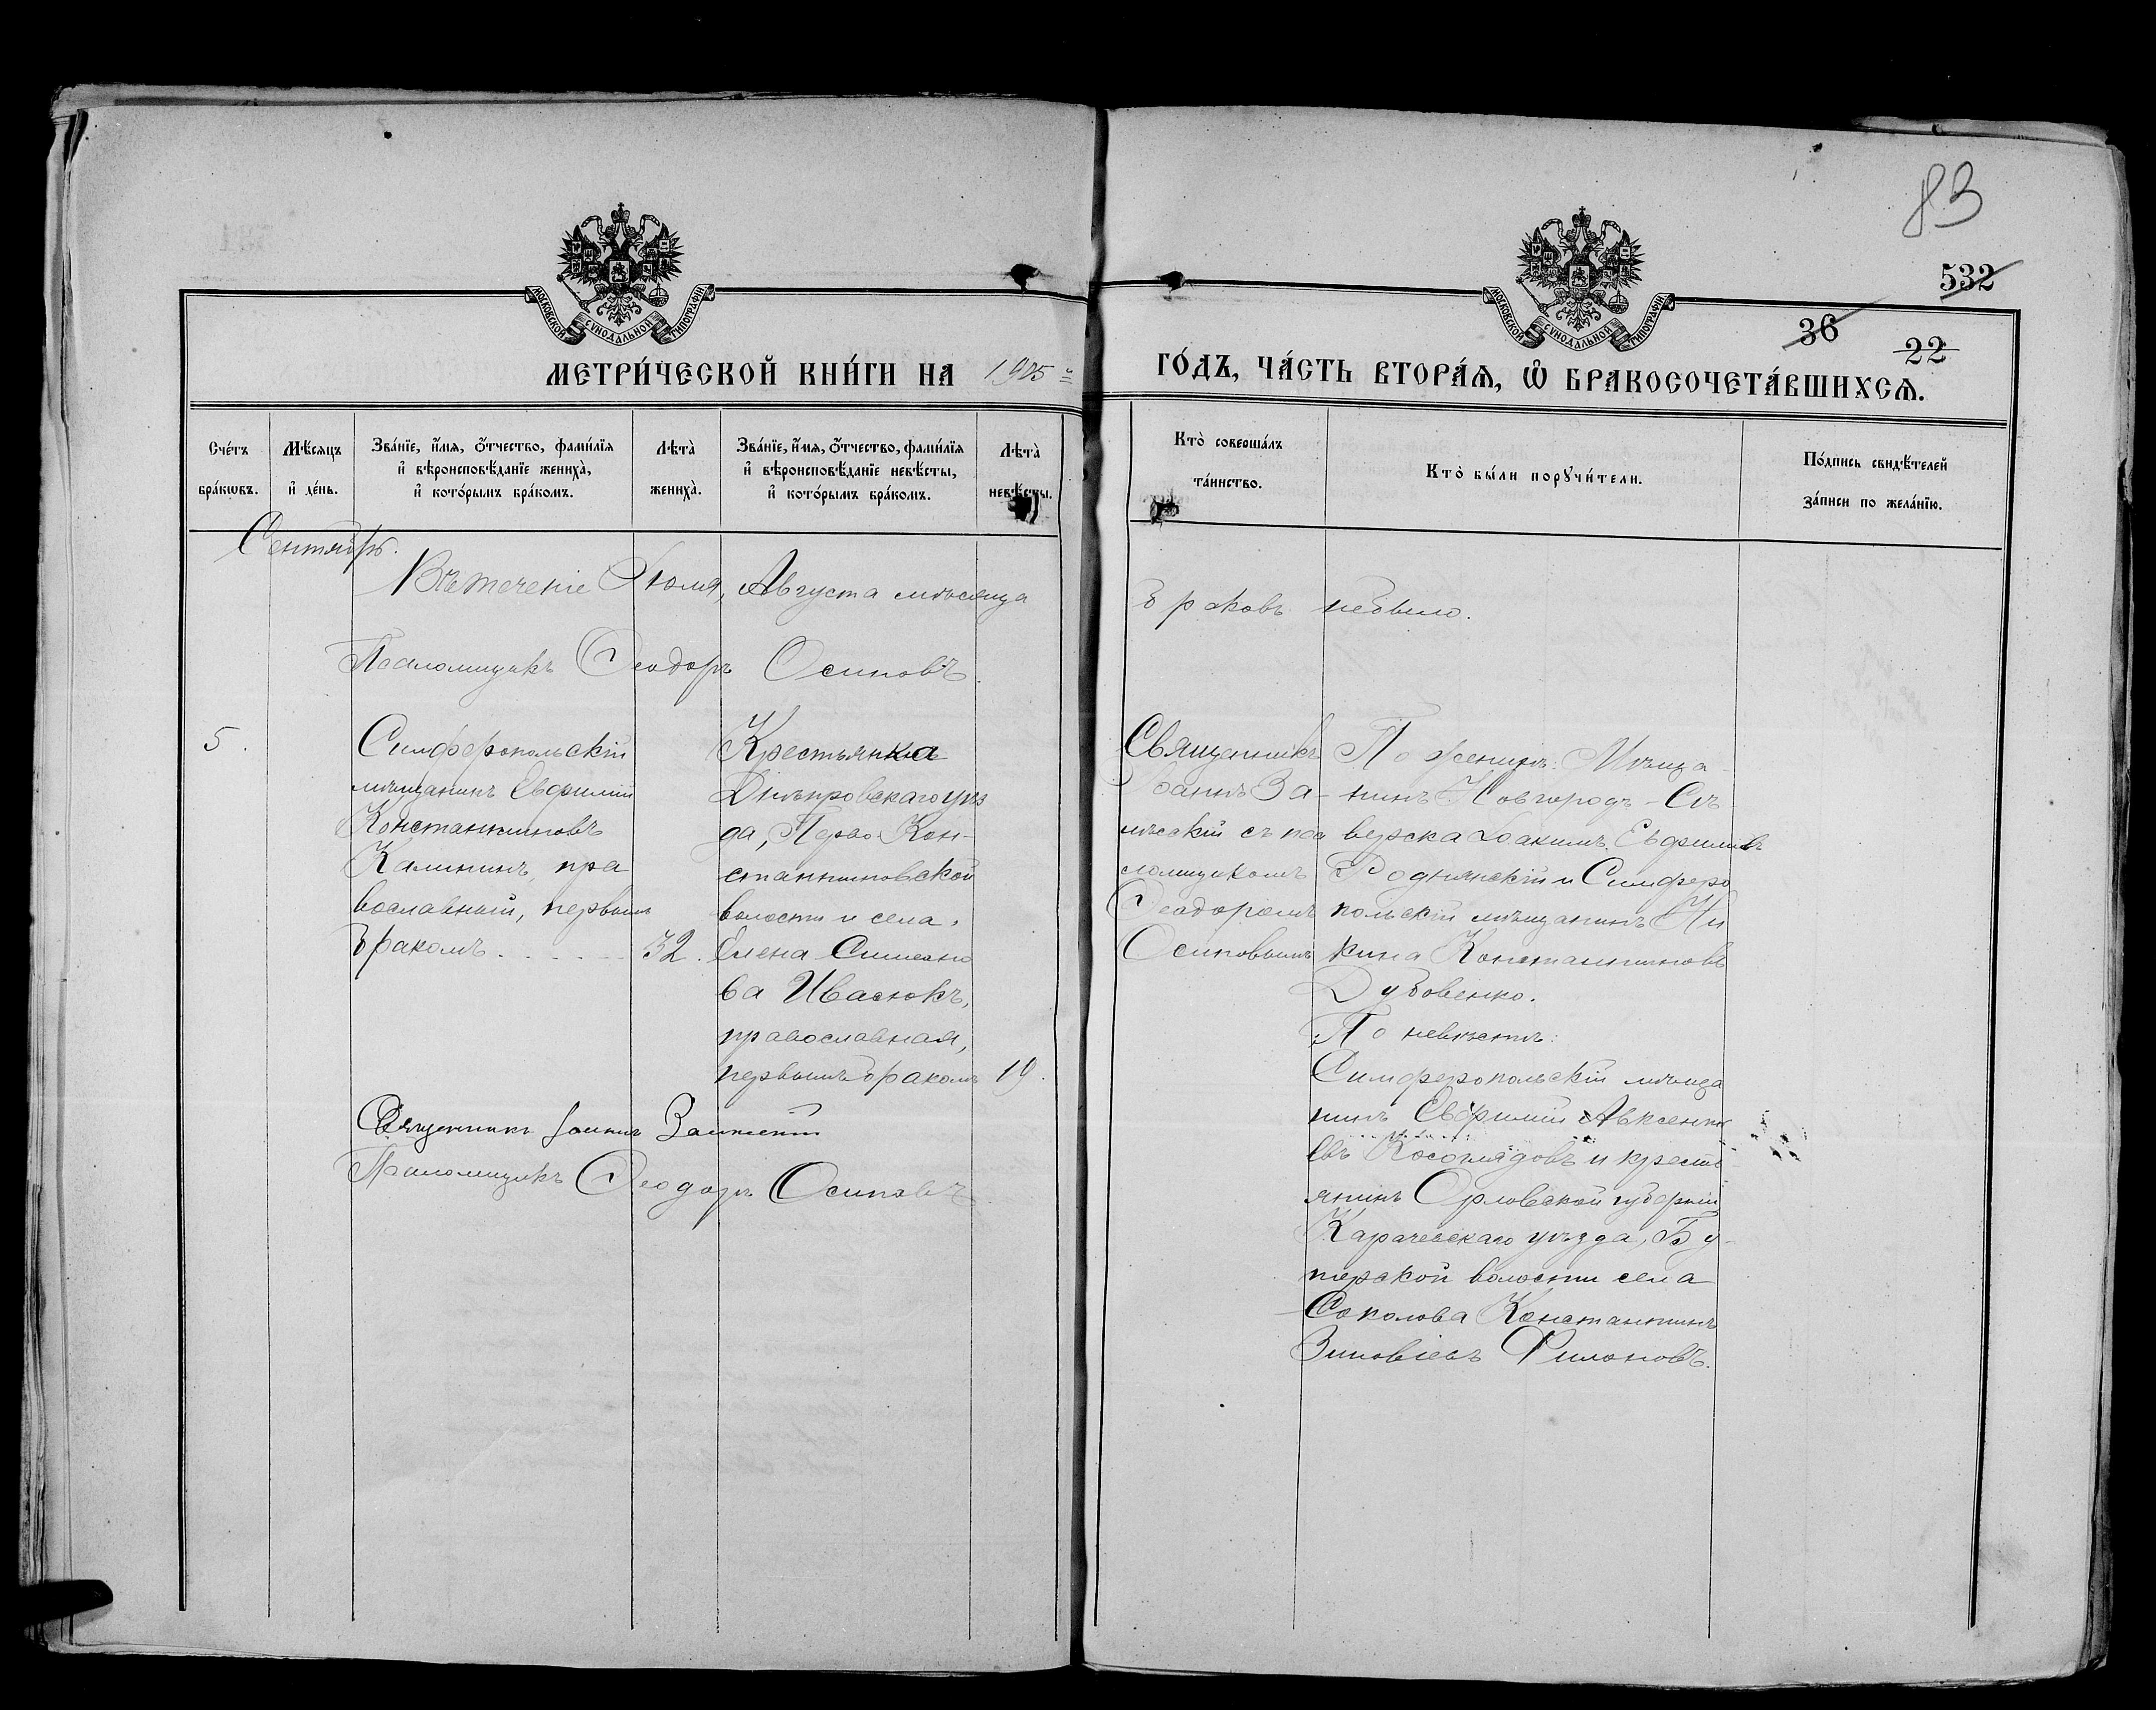 83
532
36
22
МОСКОВСКОЙ СѴНОДАЛЬНОЙ ТИПОГРАФІИ
МОСКОВСКОЙ СѴНОДАЛЬНОЙ ТИПОГРАФІИ
МЕТРИ́ЧЕСКОЙ КНИ́ГИ НА 1905 й
ГО́ДЪ, ЧА́СТЬ ВТОРА́Ѧ, Ѽ БРАКОСОЧЕТА́ВШИХСѦ.
Сче́тъ
бра́кѡвъ.
Мѣ́сяцъ
и҆ де́нь.
Зва́нїе, и҆́мя, ѻ҆́тчество, фами́лїя
и҆ вѣроисповѣ́данїе жениха̀,
и҆ кото́рымъ бра́комъ.
Лѣта̀
жениха̀.
Зва́нїе, и҆́мя, ѻ҆́тчество, фами́лїя
и҆ вѣроисповѣ́данїе невѣ́сты,
и҆ кото́рымъ бра́комъ.
Лѣта̀
невѣ́сты.
Кто̀ соверша́лъ
та́инство.
Кто̀ бы́ли порꙋчи́тели.
По́дпись свидѣ́телей
за́писи по жела́нїю.
Сентябрь.
Въ теченіе Іюля, Августа мѣсяца
браковъ небыло.
Псаломщикъ Ѳеодоръ Осиповъ.
5.
Симферопольскій
мѣщанинъ Евфимій
Константиновъ
Калининъ, пра
вославный, первымъ
бракомъ
32.
Крестьянка
Днѣпровскаго уѣз
да, Перво-Кон-
стантиновской
волости и села,
Елена Симеоно
ва Ивасюкъ,
православная,
первымъ бракомъ
19.
Священникъ
Іоаннъ За-
мѣсскій съ пса
ломщикомъ
Ѳеодоромъ
Осиповымъ
По женихѣ: Мѣща
нинъ Новгородъ-Сѣ-
верска Іоакимъ Евфиміевъ
Роднянскій и Симферо
польскій мѣщанинъ Ни
кита Константиновъ
Дубовенко.
По невѣстѣ:
Симферопольскій мѣща
нинъ Евфимій Авксентi
евъ Косоглядовъ и кресть
янинъ Орловской губерніи
Карачевскаго уѣзда, Бу
терской волости села
Соколова Константинъ
Зиновіевъ Филоновъ.
Священникъ Іоаннъ
Псаломщикъ Ѳеодоръ Осиповъ